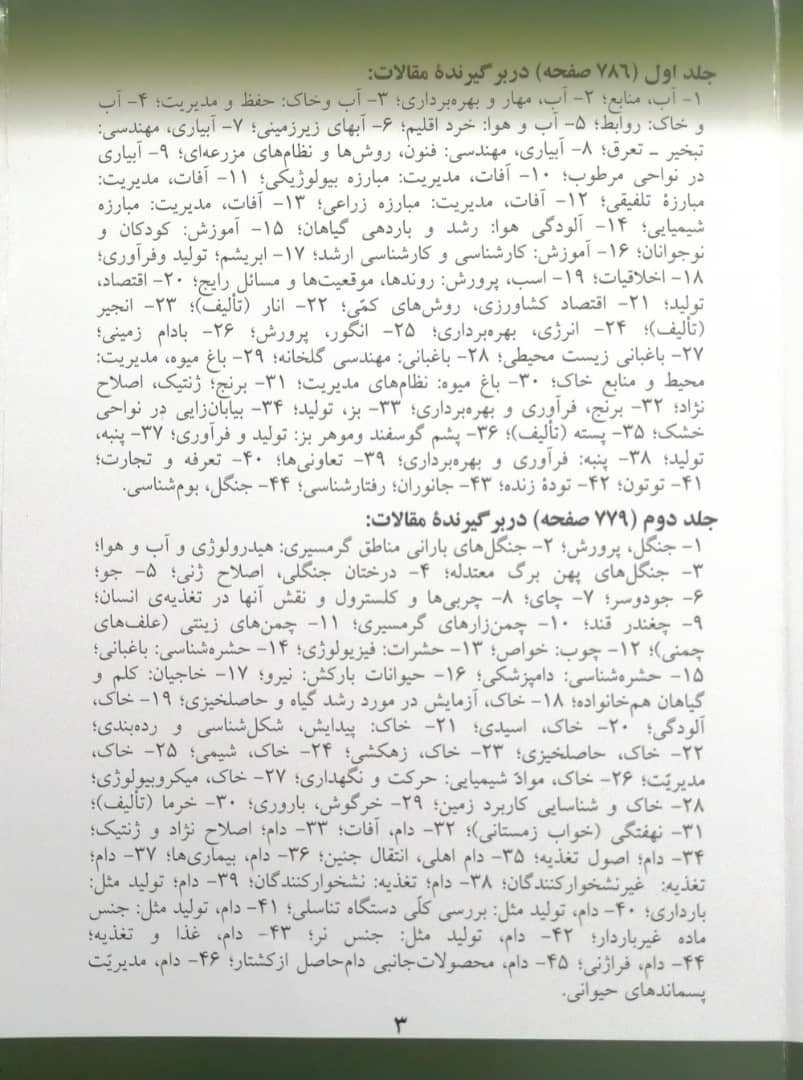 جلد اول (۷۸۶ صفحه) دربرگیرندهٔ مقالات:
۱- آب، منابع؛ ۲- آب، مهار و بهره‌برداری؛ ۳- آب وخاک: حفظ و مدیریت؛ ۴- آب
و خاک: روابط؛ ۵- آب و هوا: خرد اقلیم؛ ۶- آبهای زیرزمینی؛ ۷- آبیاری، مهندسی:
تبخیر ـ تعرق؛ ۸- آبیاری، مهندسی: فنون، روش‌ها و نظام‌های مزرعه‌ای؛ ۹- آبیاری
در نواحی مرطوب؛ ۱۰- آفات، مدیریت: مبارزه بیولوژیکی؛ ۱۱- آفات، مدیریت:
مبارزهٔ تلفیقی؛ ۱۲- آفات، مدیریت: مبارزه زراعی؛ ۱۳- آفات، مدیریت: مبارزه
شیمیایی؛ ۱۴- آلودگی هوا: رشد و باردهی گیاهان؛ ۱۵- آموزش: کودکان و
نوجوانان؛ ۱۶- آموزش: کارشناسی و کارشناسی ارشد؛ ۱۷- ابریشم؛ تولید وفرآوری؛
۱۸- اخلاقیات؛ ۱۹- اسب، پرورش: روندها، موقعیت‌ها و مسائل رایج؛ ۲۰- اقتصاد،
تولید؛ ۲۱- اقتصاد کشاورزی، روش‌های کمّی؛ ۲۲- انار (تألیف)؛ ۲۳- انجیر
(تألیف)؛ ۲۴- انرژی، بهره‌برداری؛ ۲۵- انگور، پرورش؛ ۲۶- بادام زمینی؛
۲۷- باغبانی زیست محیطی؛ ۲۸- باغبانی: مهندسی گلخانه؛ ۲۹- باغ میوه، مدیریت:
محیط و منابع خاک؛ ۳۰- باغ میوه: نظام‌های مدیریت؛ ۳۱- برنج؛ ژنتیک، اصلاح
نژاد؛ ۳۲- برنج، فرآوری و بهره‌برداری؛ ۳۳- بز، تولید؛ ۳۴- بیابان‌زایی در نواحی
خشک؛ ۳۵- پسته (تألیف)؛ ۳۶- پشم گوسفند وموهر بز: تولید و فرآوری؛ ۳۷- پنبه،
تولید؛ ۳۸- پنبه: فرآوری و بهره‌برداری؛ ۳۹- تعاونی‌ها؛ ۴۰- تعرفه و تجارت؛
۴۱- توتون؛ ۴۲- تودهٔ زنده؛ ۴۳- جانوران؛ رفتارشناسی؛ ۴۴- جنگل، بوم‌شناسی.
جلد دوم (۷۷۹ صفحه) دربرگیرندهٔ مقالات:
۱- جنگل، پرورش؛ ۲- جنگل‌های بارانی مناطق گرمسیری: هیدرولوژی و آب و هوا؛
۳- جنگل‌های پهن برگ معتدله؛ ۴- درختان جنگلی، اصلاح ژنی؛ ۵- جو؛
۶- جودوسر؛ ۷- چای؛ ۸- چربی‌ها و کلسترول و نقش آنها در تغذیه‌ی انسان؛
۹- چغندر قند؛ ۱۰- چمن‌زارهای گرمسیری؛ ۱۱- چمن‌های زینتی (علف‌های
چمنی)؛ ۱۲- چوب: خواص؛ ۱۳- حشرات: فیزیولوژی؛ ۱۴- حشره‌شناسی: باغبانی؛
۱۵- حشره‌شناسی: دامپزشکی؛ ۱۶- حیوانات بارکش: نیرو؛ ۱۷- خاجیان: کلم و
گیاهان هم‌خانواده؛ ۱۸- خاک، آزمایش در مورد رشد گیاه و حاصلخیزی؛ ۱۹- خاک،
آلودگی؛ ۲۰- خاک، اسیدی؛ ۲۱- خاک: پیدایش، شکل‌شناسی و رده‌بندی؛
۲۲- خاک، حاصلخیزی؛ ۲۳- خاک، زهکشی؛ ۲۴- خاک، شیمی؛ ۲۵- خاک،
مدیریّت؛ ۲۶- خاک، موادّ شیمیایی: حرکت و نگهداری؛ ۲۷- خاک، میکروبیولوژی؛
۲۸- خاک و شناسایی کاربرد زمین؛ ۲۹- خرگوش، باروری؛ ۳۰- خرما (تألیف)؛
۳۱- نهفتگی (خواب زمستانی)؛ ۳۲- دام، آفات؛ ۳۳- دام؛ اصلاح نژاد و ژنتیک؛
۳۴- دام؛ اصول تغذیه؛ ۳۵- دام اهلی، انتقال جنین؛ ۳۶- دام، بیماری‌ها؛ ۳۷- دام؛
تغذیه: غیرنشخوارکنندگان؛ ۳۸- دام؛ تغذیه: نشخوارکنندگان؛ ۳۹- دام؛ تولید مثل:
بارداری؛ ۴۰- دام، تولید مثل: بررسی کلّی دستگاه تناسلی؛ ۴۱- دام، تولید مثل: جنس
ماده غیرباردار؛ ۴۲- دام، تولید مثل: جنس نر؛ ۴۳- دام، غذا و تغذیه؛
۴۴- دام، فراژنی؛ ۴۵- دام، محصولات‌جانبی دام‌حاصل ازکشتار؛ ۴۶- دام، مدیریّت
پسماندهای حیوانی.
۳